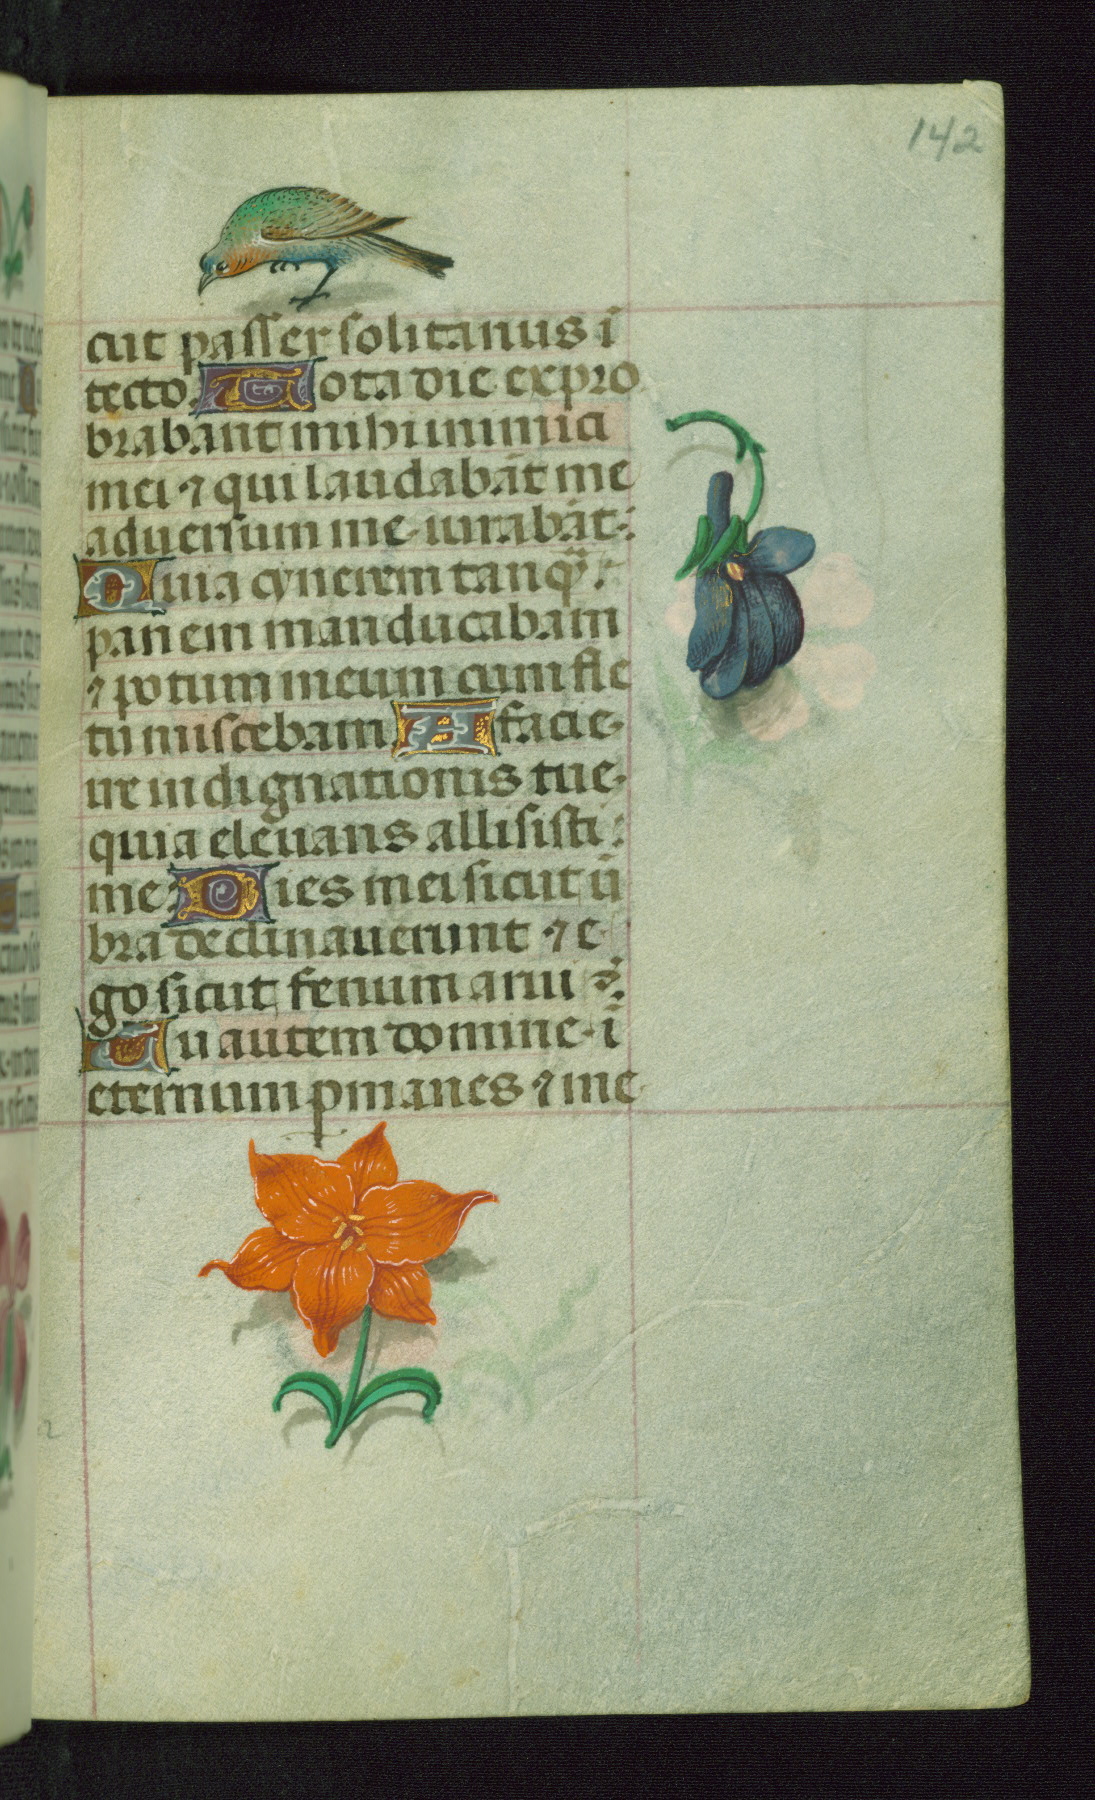 142
cut passer solitarius ī
tecto. Tota die expro
brabant mihi inimici
mei ⁊ qui laudabāt me
aduersum me iurabāt:
Quia cynerem tanq̄ȝ
panem manducabam
⁊ potum meum cum fle
tu miscebam. A facie
ire indignationis tue
quia eleuans allisisti
me: Dies mei sicut ū
bra declinauerunt ⁊ e
go sicut fenum arui
Tu autem domine ī
eternum ꝑmanes ⁊ me